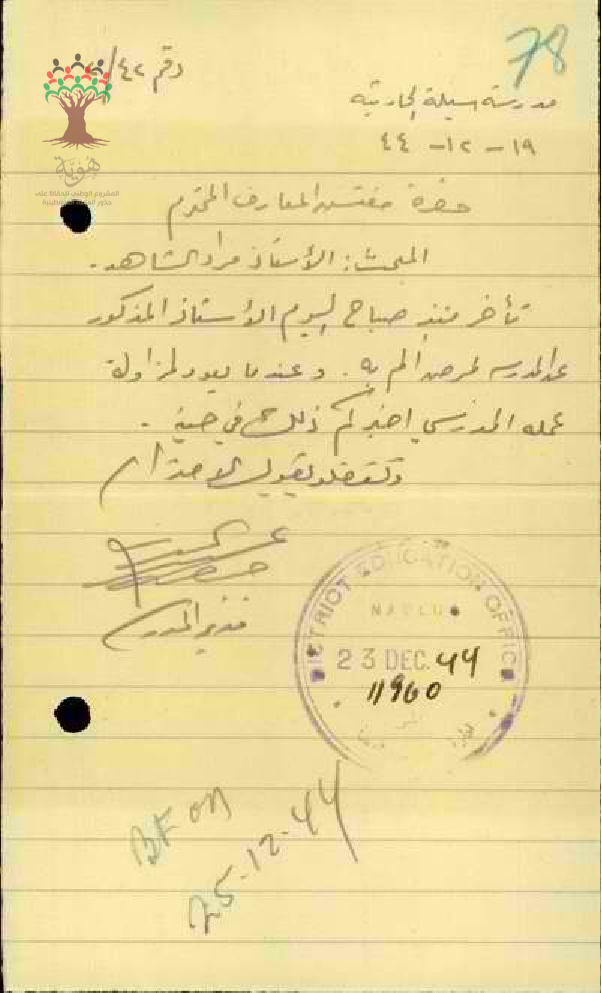 78
رقم ٤٢/
مدرسة سيلة الحارثية
١٩ - ١٢ - ٤٤
هوية
المشروع الوطني للحفاظ على
حضرة مفتش المعارف المحترم
المبحث: الأستاذ مراد الشاهد.
تأخر منذ صباح اليوم الأستاذ المذكور
عن المدرسة لمرض الم به. وعندما يعود لمزاولة
عمله المدرسي اخبركم ذلك في حينه.
وتفضلوا بقبول الاحترام
مدير المدرسة
DISTRICT EDUCATION OFFICE
NABLUS
23 DEC. 44
11960
BF on
25-12-44